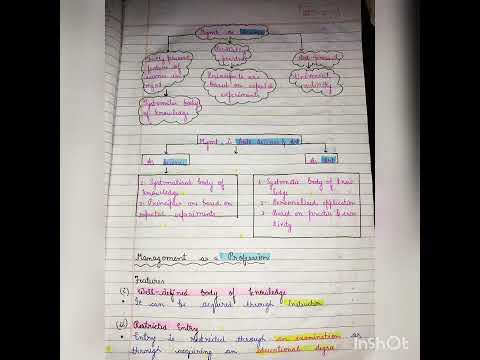 Mgmt as Science
Fully present
feature of
science in
mgmt
Systematic body
of knowledge
Partially
present
Principles are
based on repeated
experiments
Not present
Universal
validity
Mgmt. is Both Science & Art
As Science
1- Systematised body of
knowledge
2- Principles are based on
repeated experiments
As Art
1- Systematic body of know-
ledge
2- Personalised application
3- Based on practice & crea-
tivity
Management as a Profession
Features
(i) Well-defined body of knowledge
• It can be acquired through Instruction
(ii) Restricted Entry
• Entry is restricted through an examination or
through acquiring an educational degree
InShOt